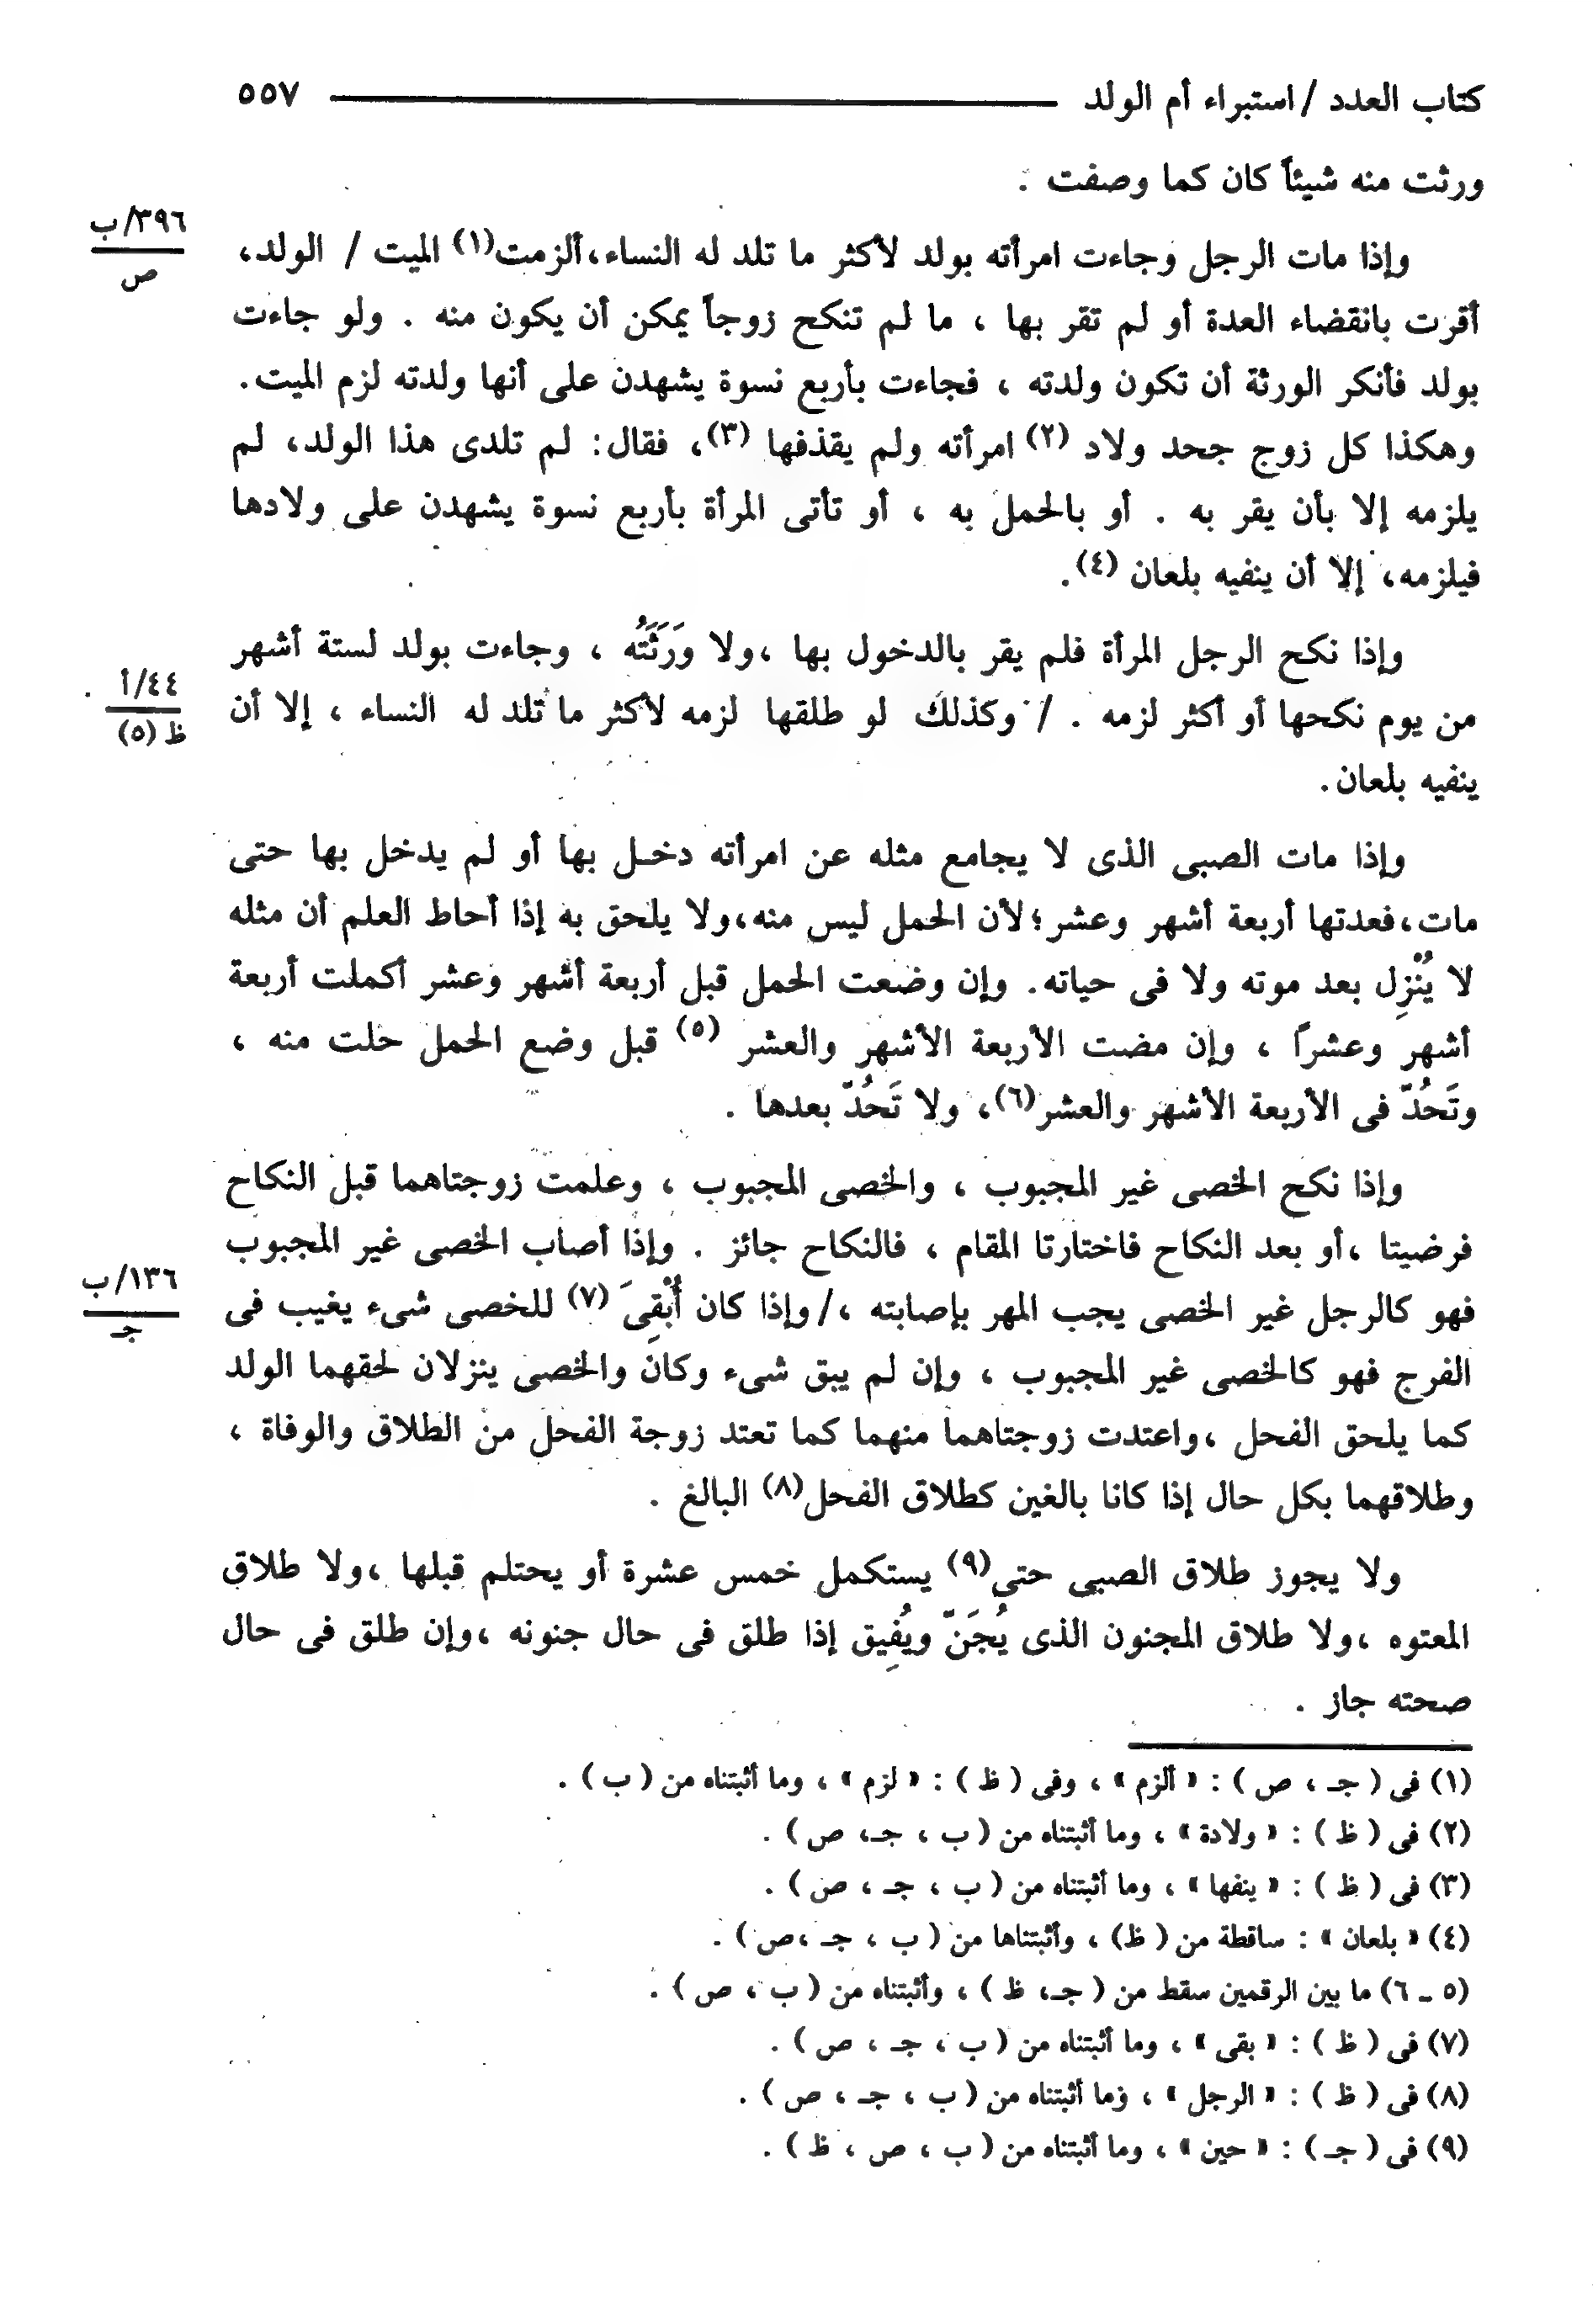 كتاب العدد / استبراء أم الولد ٥٥٧
ورثت منه شيئاً كان كما وصفت .
وإذا مات الرجل وجاءت امرأته بولد لأكثر ما تلد له النساء، ألزمت(١) الميت / الولد،
٣٩٦/ب
ص
أقرت بانقضاء العدة أو لم تقر بها ، ما لم تنكح زوجاً يمكن أن يكون منه . ولو جاءت
بولد فأنكر الورثة أن تكون ولدته ، فجاءت بأربع نسوة يشهدن على أنها ولدته لزم الميت.
وهكذا كل زوج جحد ولاد (٢) امرأته ولم يقذفها (٣)، فقال: لم تلدى هذا الولد، لم
يلزمه إلا بأن يقر به . أو بالحمل به ، أو تأتى المرأة بأربع نسوة يشهدن على ولادها
فيلزمه، إلا أن ينفيه بلعان (٤).
وإذا نكح الرجل المرأة فلم يقر بالدخول بها ،ولا وَرَثَتُه ، وجاءت بولد لستة أشهر
من يوم نكحها أو أكثر لزمه . / وكذلك لو طلقها لزمه لأكثر ما تلد له النساء ، إلا أن
٤٤/أ
ظ (٥)
ينفيه بلعان.
وإذا مات الصبى الذى لا يجامع مثله عن امرأته دخل بها أو لم يدخل بها حتى
مات،فعدتها أربعة أشهر وعشر؛لأن الحمل ليس منه،ولا يلحق به إذا أحاط العلم أن مثله
لا يُنْزِل بعد موته ولا فى حياته. وإن وضعت الحمل قبل أربعة أشهر وعشر أكملت أربعة
أشهر وعشراً ، وإن مضت الأربعة الأشهر والعشر (٥) قبل وضع الحمل حلت منه ،
وتَحُدّ فى الأربعة الأشهر والعشر(٦)، ولا تَحُدّ بعدها .
وإذا نكح الخصى غير المجبوب ، والخصى المجبوب ، وعلمت زوجتاهما قبل النكاح
فرضيتا ،أو بعد النكاح فاختارتا المقام ، فالنكاح جائز . وإذا أصاب الخصى غير المجبوب
فهو كالرجل غير الخصى يجب المهر بإصابته ،/ وإذا كان أُبْقِىَ (٧) للخصى شىء يغيب فى
١٣٦/ب
جـ
الفرج فهو كالخصى غير المجبوب ، وإن لم يبق شىء وكان والخصى ينزلان لحقهما الولد
كما يلحق الفحل ،واعتدت زوجتاهما منهما كما تعتد زوجة الفحل من الطلاق والوفاة ،
وطلاقهما بكل حال إذا كانا بالغين كطلاق الفحل(٨) البالغ .
ولا يجوز طلاق الصبى حتى(٩) يستكمل خمس عشرة أو يحتلم قبلها ،ولا طلاق
المعتوه ،ولا طلاق المجنون الذى يُجَنّ ويُفِيق إذا طلق فى حال جنونه ،وإن طلق فى حال
صحته جاز .
(١) فى ( جـ ، ص ) : « ألزم » ، وفى ( ظ ) : « لزم » ، وما أثبتناه من ( ب ) .
(٢) فى ( ظ ) : « ولادة » ، وما أثبتناه من ( ب ، جـ، ص ) .
(٣) فى ( ظ ) : « ينفها » ، وما أثبتناه من ( ب ، جـ ، ص ) .
(٤) « بلعان » : ساقطة من ( ظ) ، وأثبتناها من ( ب ، جـ ،ص ) .
(٥ ـ ٦) ما بين الرقمين سقط من ( جـ، ظ ) ، وأثبتناه من ( ب ، ص ) .
(٧) فى ( ظ ) : « بقى » ، وما أثبتناه من ( ب ، جـ ، ص ) .
(٨) فى ( ظ ) : « الرجل » ، وما أثبتناه من ( ب ، جـ ، ص ) .
(٩) فى ( جـ ) : « حين » ، وما أثبتناه من ( ب ، ص ، ظ ) .